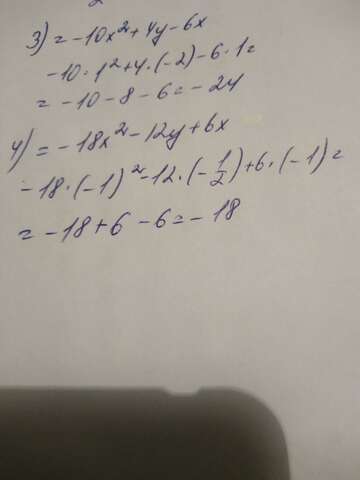 3) = -10x²+4y-6x
-10·1²+4·(-2)-6·1=
= -10-8-6=-24
4) = -18x²-12y+6x
-18·(-1)²-12·(-1/2)+6·(-1)=
= -18+6-6=-18